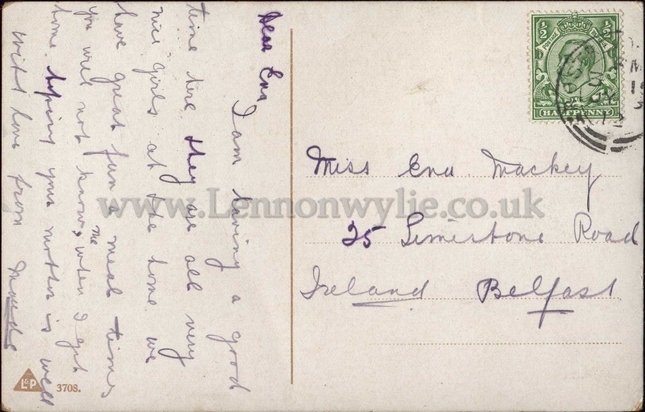 Dear Ena
I am having a good
time here they are all very
nice girls at the home we
have great fun meal times
you will not know me when I get
home hoping your mother is well
with love from Maude
HALFPENNY
Miss Ena Mackey
25 Limestone Road
Ireland Belfast
www.Lennonwylie.co.uk
L&P 3708.